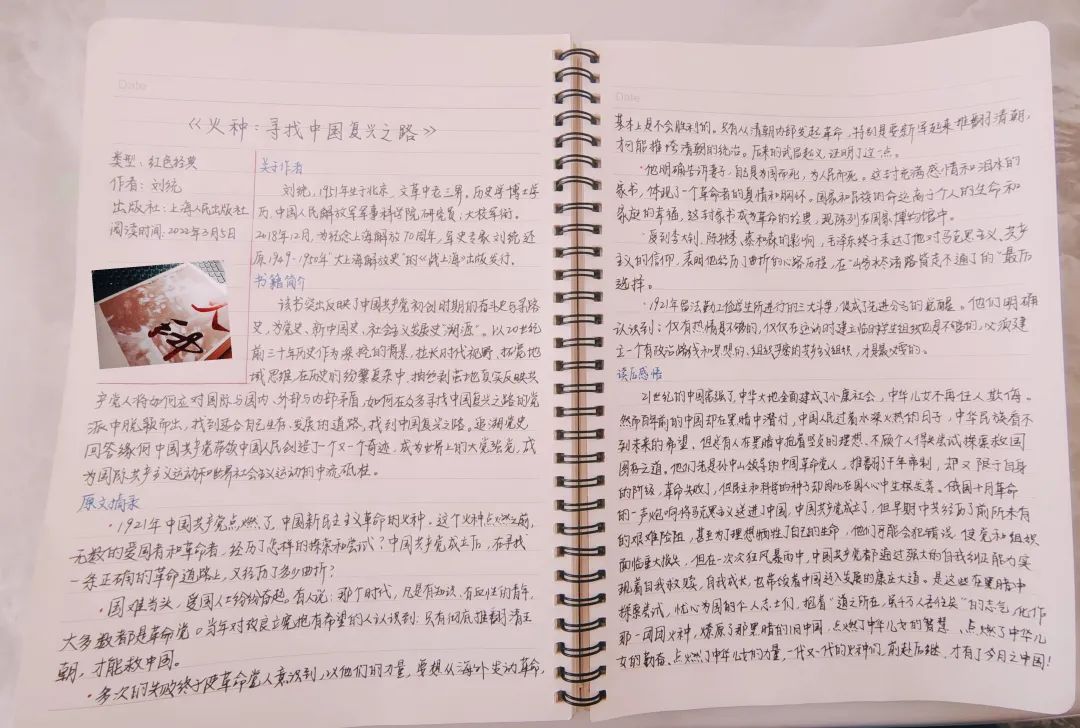 Date
《火种：寻找中国复兴之路》
类型：红色经典
作者：刘统
出版社：上海人民出版社
阅读时间：2022年3月5日
关于作者
刘统，1951年生于北京，文革中老三届。历史学博士学
历，中国人民解放军军事科学院，研究员，大校军衔。
2018年12月，为纪念上海解放70周年，军史专家刘统还
原1949-1950年"大上海解放史"的《战上海》出版发行。
书籍简介
该书突出反映了中国共产党初创时期的奋斗史与求路
史，为党史、新中国史、社会主义发展史"溯源"。以20世纪
前三十年历史作为深挖的背景，拉长时代视野、拓宽地
域思维，在历史的纷繁复杂中，抽丝剥茧地真实反映共
产党人将如何应对国际与国内、外部与内部矛盾，如何在众多寻找中国复兴之路的党
派中脱颖而出，找到适合自己生存、发展的道路，找到中国复兴之路。追溯党史，
回答缘何中国共产党带领中国人民创造了一个又一个奇迹，成为世界上的大党强党，成
为国际共产主义运动和世界社会主义运动的中流砥柱。
原文摘录
·1921年中国共产党点燃了，中国新民主主义革命的火种。这个火种点燃之前，
无数的爱国者和革命者，经历了怎样的探索和尝试？中国共产党成立后，在寻找
一条正确的革命道路上，又经历了多少曲折？
·国难当头，爱国人纷纷奋起。有人说：那个时代，凡是有知识、有血性的青年，
大多数都是革命党。当年对改良立宪抱有希望的人认识到：只有彻底推翻清王
朝，才能救中国。
·多次的失败终于使革命党人意识到，以他们的力量，要想从海外发动革命，
Date
基本上是不会胜利的。只有从清朝内部发起革命，特别是要新军起来推翻清朝，
才能推垮清朝的统治。后来的武昌起义证明了这一点。
·他明确告诉妻子，自己是为国而死，为人民而死。这封充满感情和泪水的
家书，体现了一个革命者的真情和胸怀。国家和民族的命运高于个人的生命和
家庭的幸福，这封家书成为革命的经典，现陈列在国家博物馆中。
·受到李大钊、陈独秀、蔡和森的影响，毛泽东终于表达了他对马克思主义、共产
主义的信仰，表明他经历了曲折的心路历程，在"山穷水尽诸路皆走不通了的"最后
选择。
·1921年留法勤工俭学生所进行的三大斗争，促成了先进分子的觉醒。他们明确
认识到：仅有热情是不够的，仅仅在运动时建立临时学生组织也是不够的，必须建
立一个有政治路线和思想的、组织严密的共产主义组织，才是最必要的。
读后感悟
21世纪的中国富强了，中华大地全面建成了小康社会，中华儿女不再任人欺侮。
然而百年前的中国却在黑暗中潜行，中国人民过着水深火热的日子，中华民族看不
到未来的希望。但总有人在黑暗中抱着坚贞的理想，不顾个人得失尝试探索救国
图存之道。他们先是孙中山领导的中国革命党人，推翻了千年帝制，却又限于自身
的阶级，革命失败了，但民主和科学的种子却因此在国人心中生根发芽。俄国十月革命
的一声炮响将马克思主义送进了中国，中国共产党成立了，但早期中共经历了前所未有
的艰难险阻，甚至为了理想牺牲了自己的生命，他们可能会犯错误，使党和组织
面临重大损失，但在一次次狂风暴雨中，中国共产党都通过强大的自我纠正能力实
现着自我救赎，自我成长，也带领着中国进入发展的康庄大道。是这些在黑暗中
探索尝试，忧心为国的仁人志士们，抱着"道之所在，虽千万人吾往矣"的志气，化作
那一团团火种，燎原了那黑暗的旧中国，点燃了中华儿女的智慧、点燃了中华儿
女的勤奋、点燃了中华儿女的力量，一代又一代的火种们，前赴后继，才有了今日之中国！